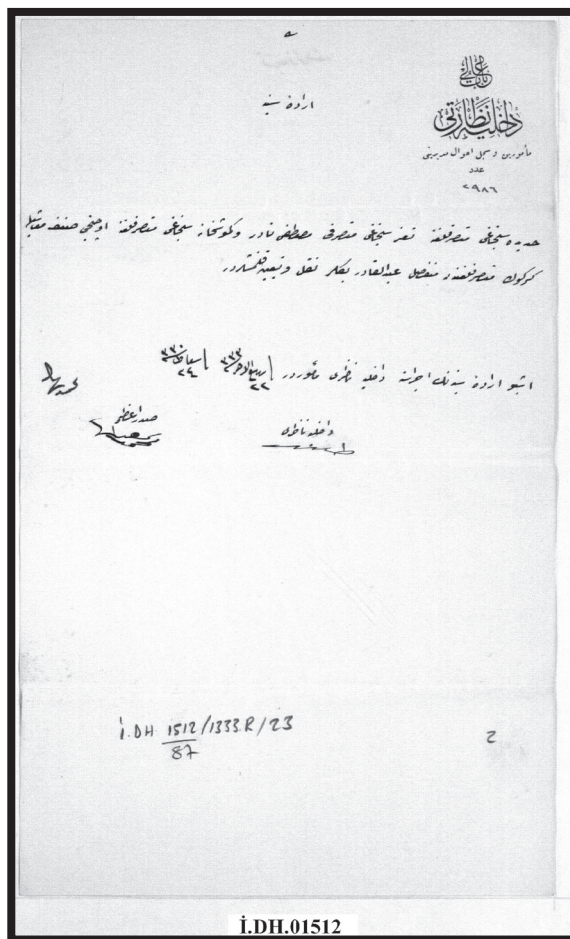 باب عالی
داخلیه نظارتی
مأمورین و سجل احوال مدیریتی
عدد
٢٩٨٦
اراده سنیه
حدیده سنجاغی متصرفلغنه تعز سنجاغی متصرفی مصطفی نادر و کموشخانه سنجاغی متصرفلغنه اوچنجی صنف
کرکوک متصرفلغندن منفصل عبدالقادر بكلر نقل و تعیین قلنمشلردر
اشبو اراده سنیه نك اجراسنه داخلیه ناظری مأموردر
٢٢ ربیع الاخر ٣٣٣
٢٤ ٣٣٠
صدر اعظم
داخلیه ناظری
İ.DH 1512/1333.R/23
87
2
İ.DH.01512